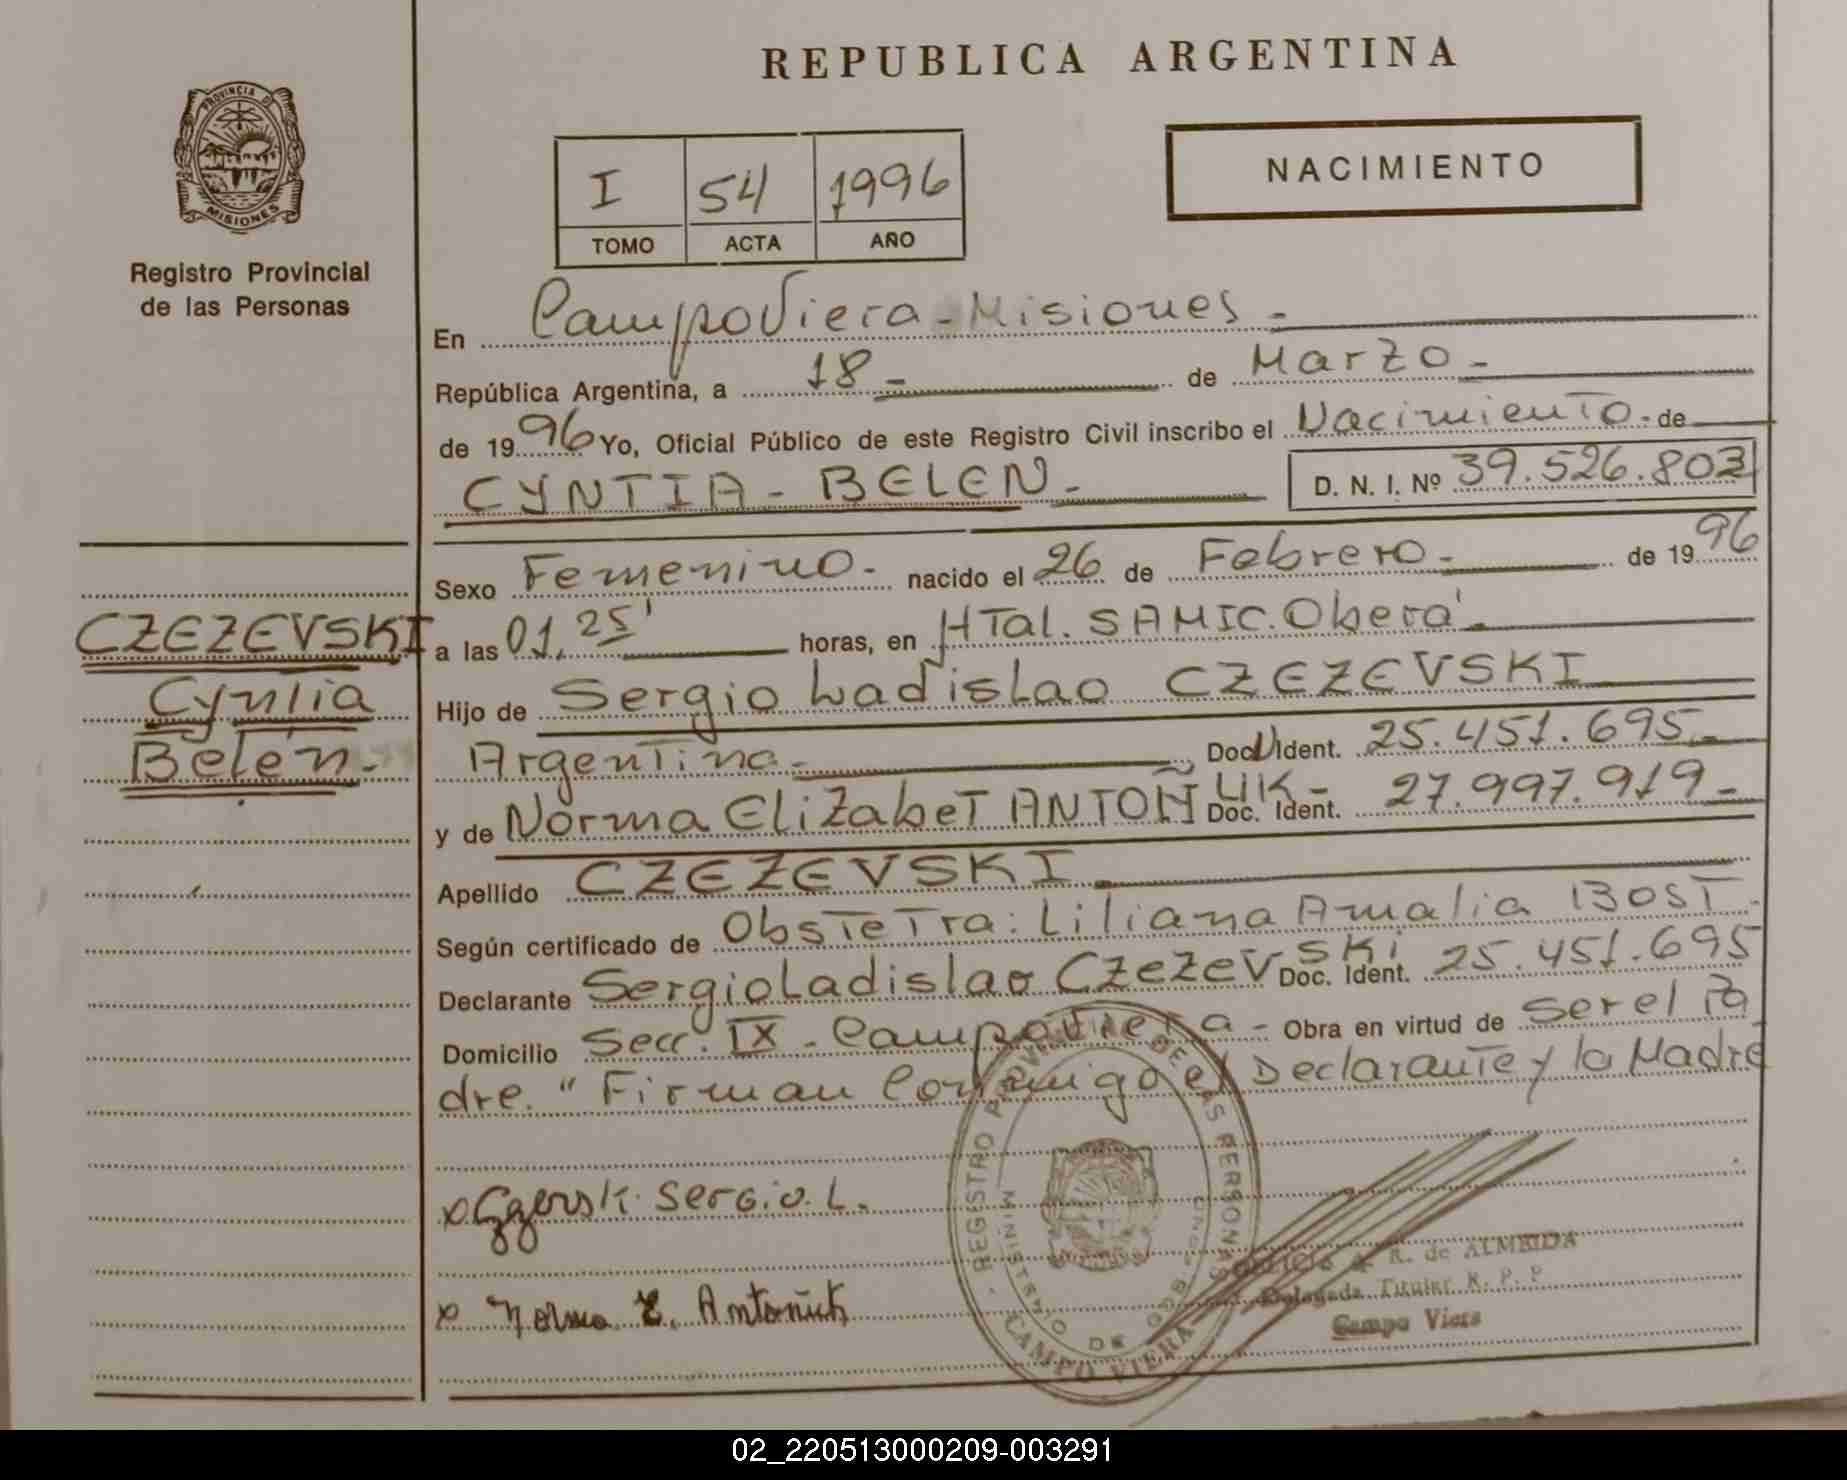 REPUBLICA ARGENTINA
PROVINCIA DE
MISIONES
Registro Provincial
de las Personas
I 54 1996
TOMO ACTA AÑO
NACIMIENTO
En CampoViera - Misiones -
República Argentina, a 18 - de Marzo -
de 1996 Yo, Oficial Público de este Registro Civil inscribo el Nacimiento - de
CYNTIA - BELEN - D. N. I. Nº 39.526.803
Sexo Femenino - nacido el 26 de Febrero - de 1996
CZEZEVSKI
Cyntia
Belén -
a las 01,25' horas, en HTal. SAMIC. Oberá -
Hijo de Sergio Ladislao CZEZEVSKI
Argentina - , Doc. Ident. 25.451.695 -
y de Norma Elizabet ANTOÑUK - Doc. Ident. 27.997.919 -
Apellido CZEZEVSKI
Según certificado de ObsTeTra: Liliana Amalia BOST -
Declarante Sergio Ladislao CZeZeVSKi Doc. Ident. 25.451.695
Domicilio Secc. IX - Campo Viera - Obra en virtud de ser el Pa
dre. " Firman Conmigo el Declarante y la Madre
Sergio. L.
x Norma E. Antoñuk
REGISTRO PROVINCIAL DE LAS PERSONAS
MINISTERIO DE GOB
CAMPO VIERA
R. de ALMEIDA
Delegada Titular R. P. P.
Campo Viera
02_220513000209-003291